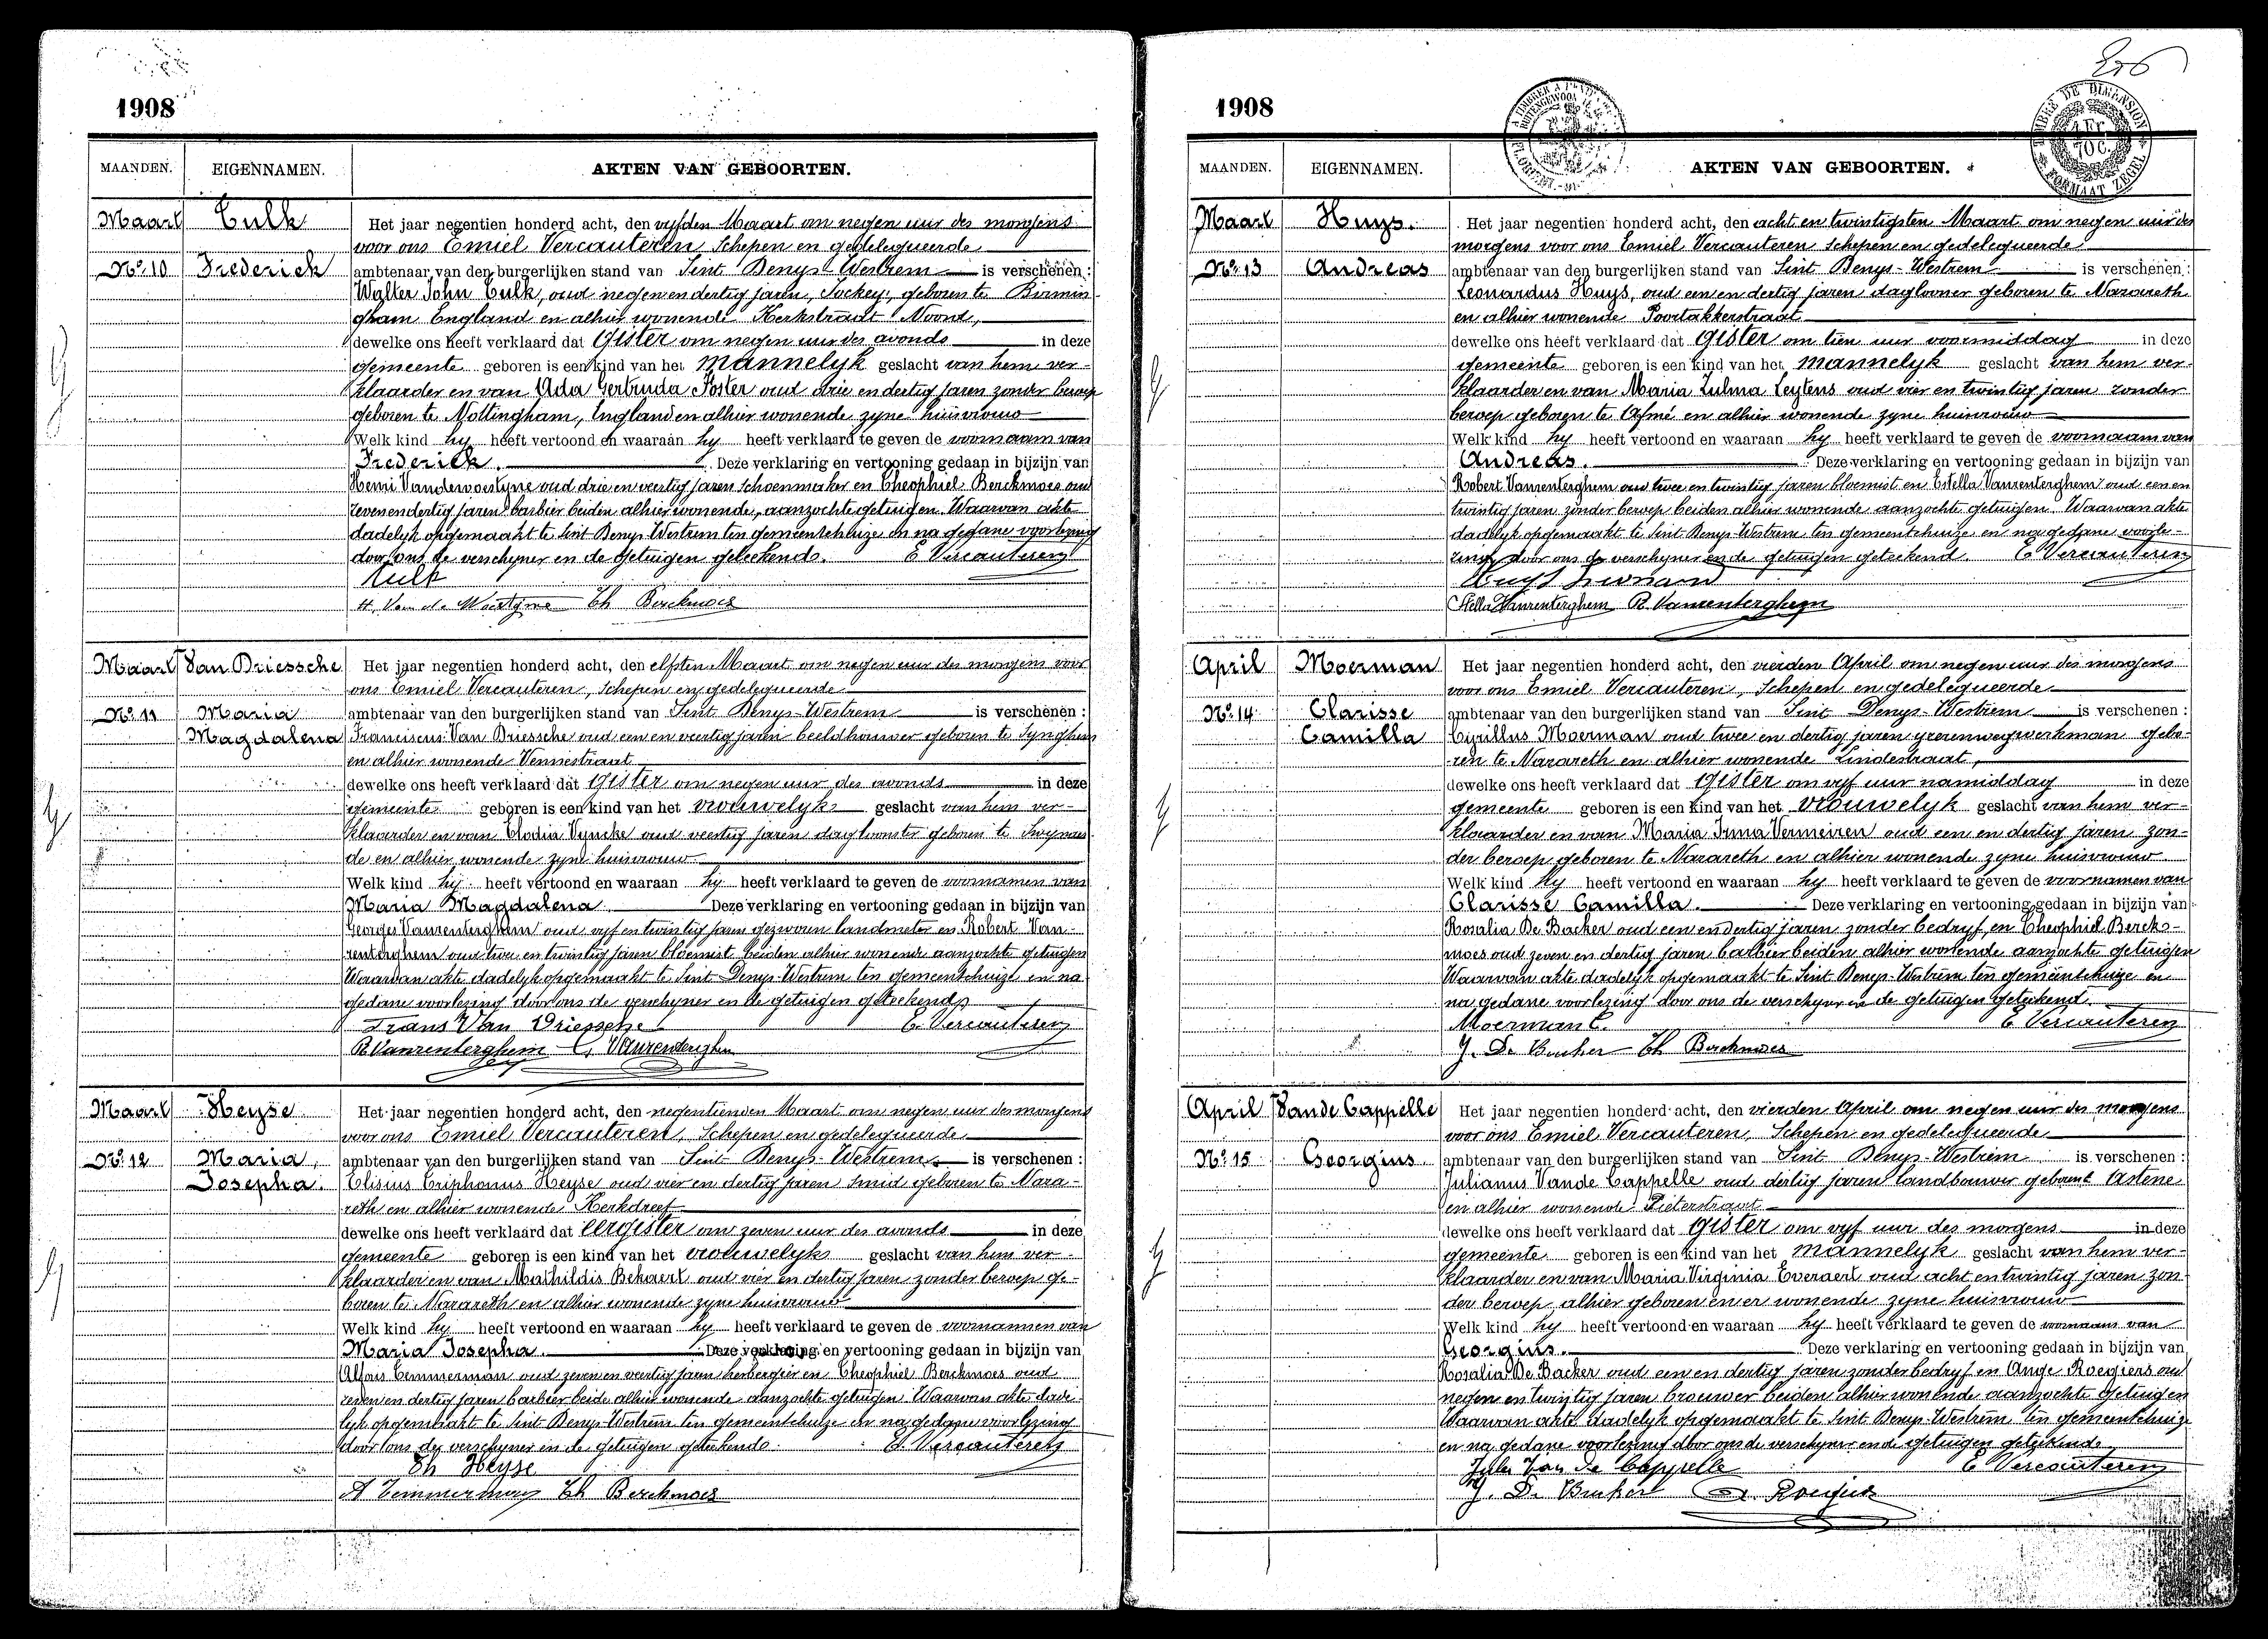 1908
MAANDEN. EIGENNAMEN. AKTEN VAN GEBOORTEN.
Maart Culk Het jaar negentien honderd acht, den vyfden Maart om negen uur des morgens
voor ons Emiel Vercauteren Schepen en gedelegueerde
No. 10 Frederick ambtenaar van den burgerlijken stand van Sint Denys-Westrem is verschenen :
Walter John Culk, oud negen en dertig jaren, Jockey, geboren te Birmin-
gham England en alhier wonende Kerkstraat Noord,
dewelke ons heeft verklaard dat gister om negen uur des avonds in deze
gemeente geboren is een kind van het mannelyk geslacht van hem ver-
klaarder en van Ada Gertruda Foster oud drie en dertig jaren zonder beroep
geboren te Nottingham, England en alhier wonende zyne huisvrouw
Welk kind hy heeft vertoond en waaraan hy heeft verklaard te geven de voornaam van
Frederick. Deze verklaring en vertooning gedaan in bijzijn van
Henri Vandewoestyne oud drie en veertig jaren schoenmaker en Theophiel Berckmoes oud
zeven en dertig jaren barbier beiden alhier wonende, aanzochte getuigen. Waarvan akte
dadelyk opgemaakt te Sint Denys Westrem ten gemeentehuize en na gedane voorlezing
door ons de verschyner en de getuigen geteekend. E Vercauteren
Culk
H. Van de Woestyne Th Berckmoes
Maart Van Driessche Het jaar negentien honderd acht, den elfsten Maart om negen uur des morgens voor
ons Emiel Vercauteren, Schepen en gedelegueerde
No. 11 Maria ambtenaar van den burgerlijken stand van Sint Denys-Westrem is verschenen :
Magdalena Franciscus Van Driessche oud een en veertig jaren beeldhouwer geboren te Synghem
en alhier wonende Vennestraat
dewelke ons heeft verklaard dat gister om negen uur des avonds in deze
gemeente geboren is een kind van het vrouwelyk geslacht van hem ver-
klaarder en van Clodia Vyncke oud veertig jaren dagloonster geboren te Swynaer-
de en alhier wonende zyne huisvrouw
Welk kind hij heeft vertoond en waaraan hy heeft verklaard te geven de voornamen van
Maria Magdalena Deze verklaring en vertooning gedaan in bijzijn van
Georges Vanrenterghem oud vyf en twintig jaren gezworen landmeter en Robert Van-
renterghem oud twee en twintig jaren bloemist beiden alhier wonende aanzochte getuigen
Waarvan akte dadelyk opgemaakt te Sint Denys-Westrem ten gemeentehuize en na
gedane voorlezing door ons de verschyner en de getuigen geteekend
Frans Van Driessche E. Vercauteren
R Vanrenterghem G. Vanrenterghem
Maart Heyse Het jaar negentien honderd acht, den negentienden Maart om negen uur des morgens
voor ons Emiel Vercauteren, Schepen en gedelegueerde
No. 12 Maria, ambtenaar van den burgerlijken stand van Sint Denys-Westrem is verschenen :
Josepha. Elisius Triphonus Heyse oud vier en dertig jaren Smid geboren te Naza-
reth en alhier wonende Kerkdreef
dewelke ons heeft verklaard dat eergister om zeven uur des avonds in deze
gemeente geboren is een kind van het vrouwelyk geslacht van hem ver-
klaarder en van Mathildis Bekaert oud vier en dertig jaren zonder beroep ge-
boren te Nazareth en alhier wonende zyne huisvrouw
Welk kind hy heeft vertoond en waaraan hy heeft verklaard te geven de voornamen van
Maria Josepha. Deze verklaring en vertooning gedaan in bijzijn van
Alfons Temmerman oud zeven en veertig jaren herbergier en Theophiel Berckmoes oud
zeven en dertig jaren barbier beide alhier wonende aanzochte getuigen. Waarvan akte dade-
lyk opgemaakt te Sint Denys-Westrem ten gemeentehuize en na gedane voorlezing
door ons de verschyner en de getuigen geteekend. E. Vercauteren
Th Heyse
A Temmerman Th Berckmoes
1908
MAANDEN. EIGENNAMEN. AKTEN VAN GEBOORTEN.
Maart Huys. Het jaar negentien honderd acht, den acht en twintigsten Maart om negen uur des
morgens voor ons Emiel Vercauteren Schepen en gedelegueerde
No. 13 Andreas ambtenaar van den burgerlijken stand van Sint Denys-Westrem is verschenen :
Leonardus Huys, oud een en dertig jaren daglooner geboren te Nazareth
en alhier wonende Poortakkerstraat
dewelke ons heeft verklaard dat gister om tien uur voormiddag in deze
gemeente geboren is een kind van het mannelyk geslacht van hem ver-
klaarder en van Maria Zulma Leytens oud vier en twintig jaren zonder
beroep geboren te Afsné en alhier wonende zyne huisvrouw
Welk kind hy heeft vertoond en waaraan hy heeft verklaard te geven de voornaam van
Andreas. Deze verklaring en vertooning gedaan in bijzijn van
Robert Vanrenterghem oud twee en twintig jaren bloemist en Estella Vanrenterghem oud een en
twintig jaren zonder beroep beiden alhier wonende aanzochte getuigen. Waarvan akte
dadelyk opgemaakt te Sint Denys-Westrem ten gemeentehuize en na gedane voorle-
zing door ons de verschyner en de getuigen geteekend. E Vercauteren
Huys Leonard
Stella Vanrenterghem R Vanrenterghem
April Moerman Het jaar negentien honderd acht, den vierden April om negen uur des morgens
voor ons Emiel Vercauteren, Schepen en gedelegueerde
No. 14 Clarisse ambtenaar van den burgerlijken stand van Sint Denys-Westrem is verschenen :
Camilla Cyrillus Moerman oud twee en dertig jaren yzerenwegwerkman gebo-
ren te Nazareth en alhier wonende Lindestraat,
dewelke ons heeft verklaard dat gister om vyf uur namiddag in deze
gemeente geboren is een kind van het vrouwelyk geslacht van hem ver-
klaarder en van Maria Irma Vermeiren oud een en dertig jaren zon-
der beroep geboren te Nazareth en alhier wonende zyne huisvrouw
Welk kind hy heeft vertoond en waaraan hy heeft verklaard te geven de voornamen van
Clarisse Camilla. Deze verklaring en vertooning gedaan in bijzijn van
Rosalia De Backer oud een en dertig jaren zonder bedryf en Theophiel Berck-
moes oud zeven en dertig jaren barbier beiden alhier wonende aanzochte getuigen
Waarvan akte dadelyk opgemaakt te Sint Denys-Westrem ten gemeentehuize en
na gedane voorlezing door ons de verschyner en de getuigen geteekend.
Moerman C. E Vercauteren
De Backer Th Berckmoes
April Vande Cappelle Het jaar negentien honderd acht, den vierden April om negen uur des morgens
voor ons Emiel Vercauteren, Schepen en gedelegueerde
No. 15 Georgius ambtenaar van den burgerlijken stand van Sint Denys-Westrem is verschenen :
Julianus Vande Cappelle oud dertig jaren landbouwer geboren te Astene
en alhier wonende Pieterstraat
dewelke ons heeft verklaard dat gister om vyf uur des morgens in deze
gemeente geboren is een kind van het mannelyk geslacht van hem ver-
klaarder en van Maria Virginia Everaert oud acht en twintig jaren zon-
der beroep alhier geboren en er wonende zyne huisvrouw
Welk kind hy heeft vertoond en waaraan hy heeft verklaard te geven de voornaam van
Georgius. Deze verklaring en vertooning gedaan in bijzijn van
Rosalia De Backer oud een en dertig jaren zonder bedryf en Ange Roegiers oud
negen en twintig jaren brouwer beiden alhier wonende aanzochte getuigen
Waarvan akte dadelyk opgemaakt te Sint Denys-Westrem ten gemeentehuize
en na gedane voorlezing door ons de verschyner en de getuigen geteekend.
Jules Van de Cappelle E Vercauteren
De Backer